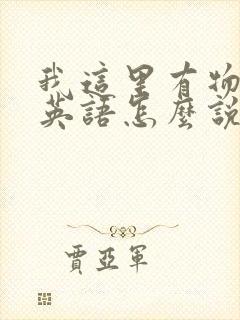 我這里有物
英語怎麼說
賈亞軍